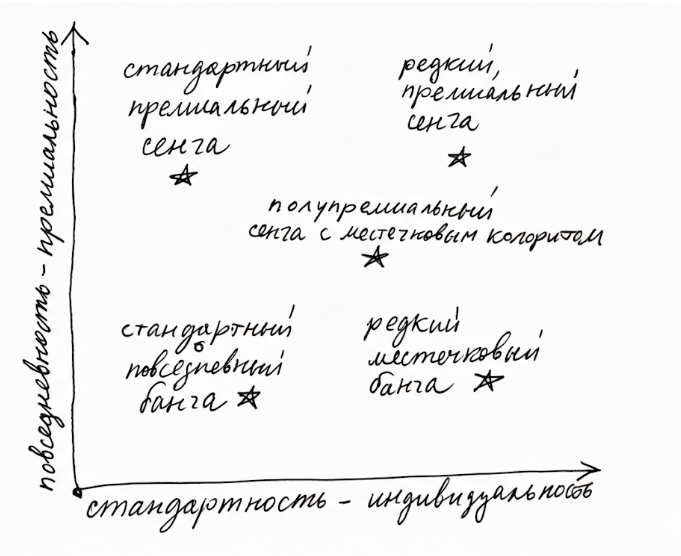 повседневность – премиальность
стандартный
премиальный
сенга
редкий,
премиальный
сенга
полупремиальный
сенга с местечковым колоритом
стандартный
повседневный
банга
редкий
местечковый
банга
стандартность – индивидуальность